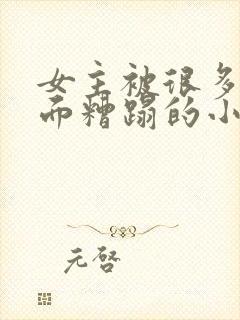 女主被很多
而糟蹋的小
元啓